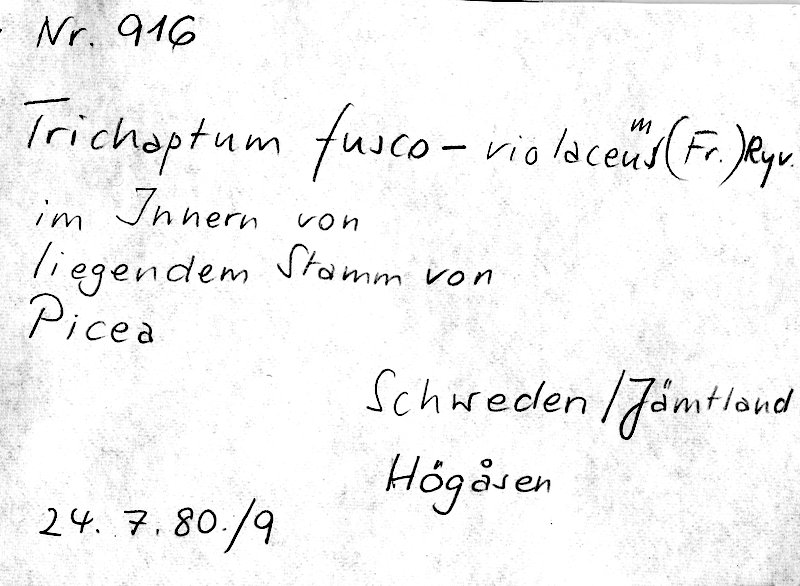 Nr. 916
Trichaptum fusco-violaceum (Fr.) Ryv.
im Innern von
liegendem Stamm von
Picea
Schweden / Jämtland
Högåsen
24. 7. 80. / 9